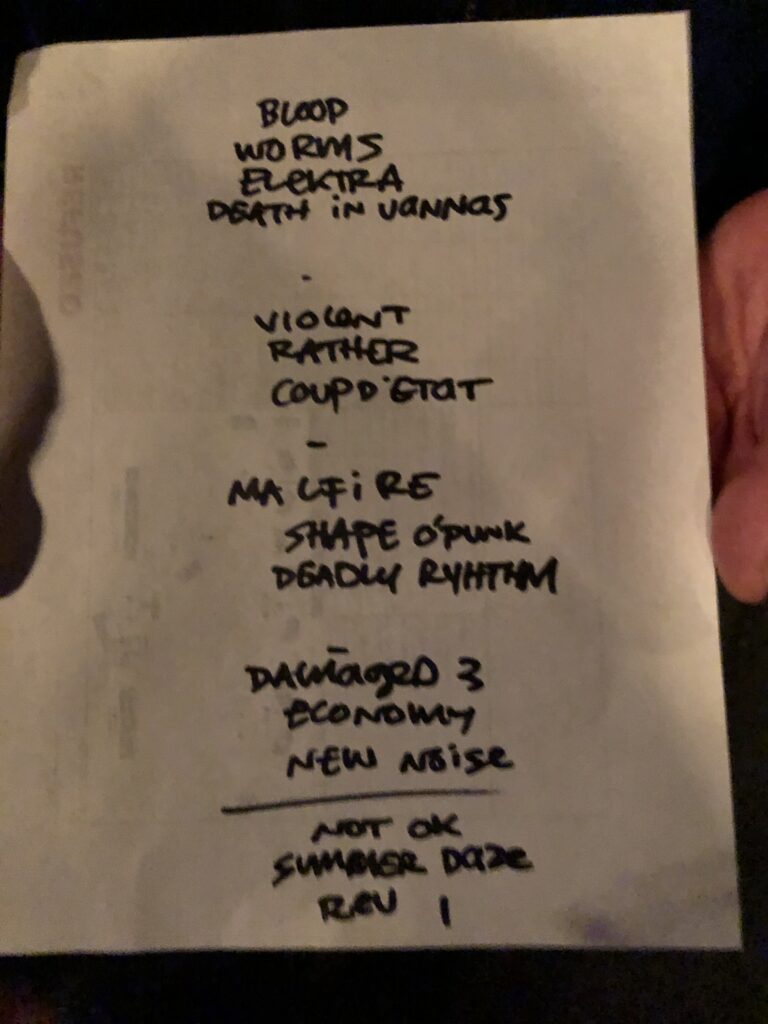 BLOOD
WORMS
ELEKTRA
DEATH in VANNAS
-
VIOLENT
RATHER
COUP D'ETAT
-
MALFIRE
SHAPE O'PUNK
DEADLY RYHTHM
-
DAMAGED 3
ECONOMY
NEW NOISE
NOT OK
SUMMER DAZE
REV 1